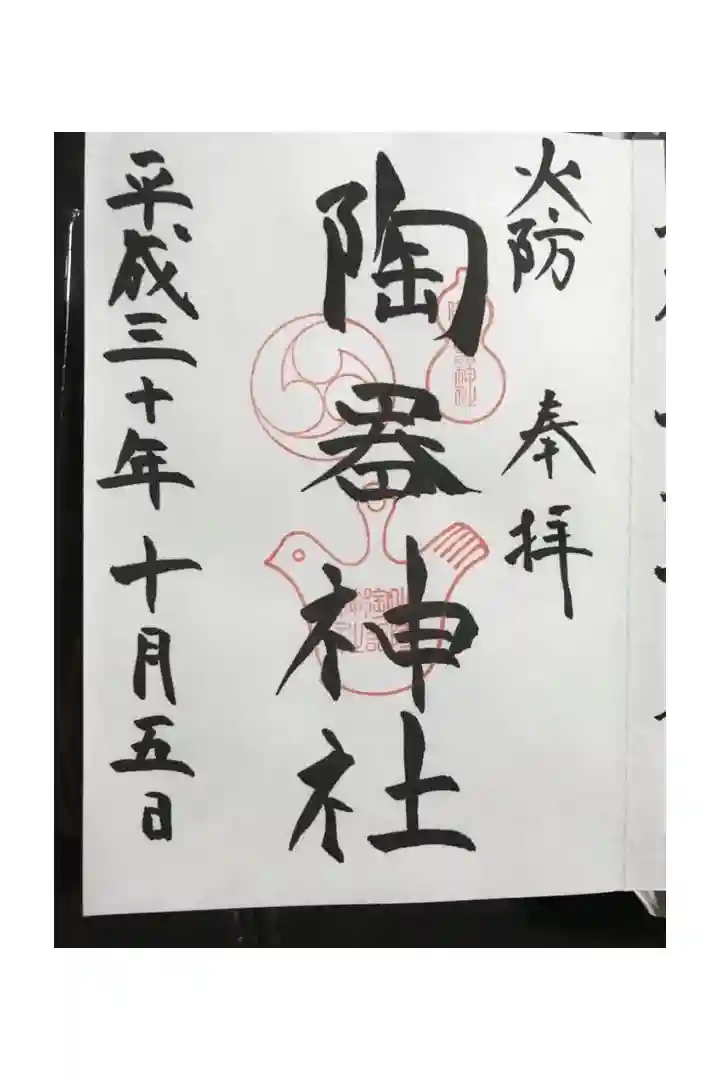 火防 奉拝
陶器神社
平成三十年十月五日